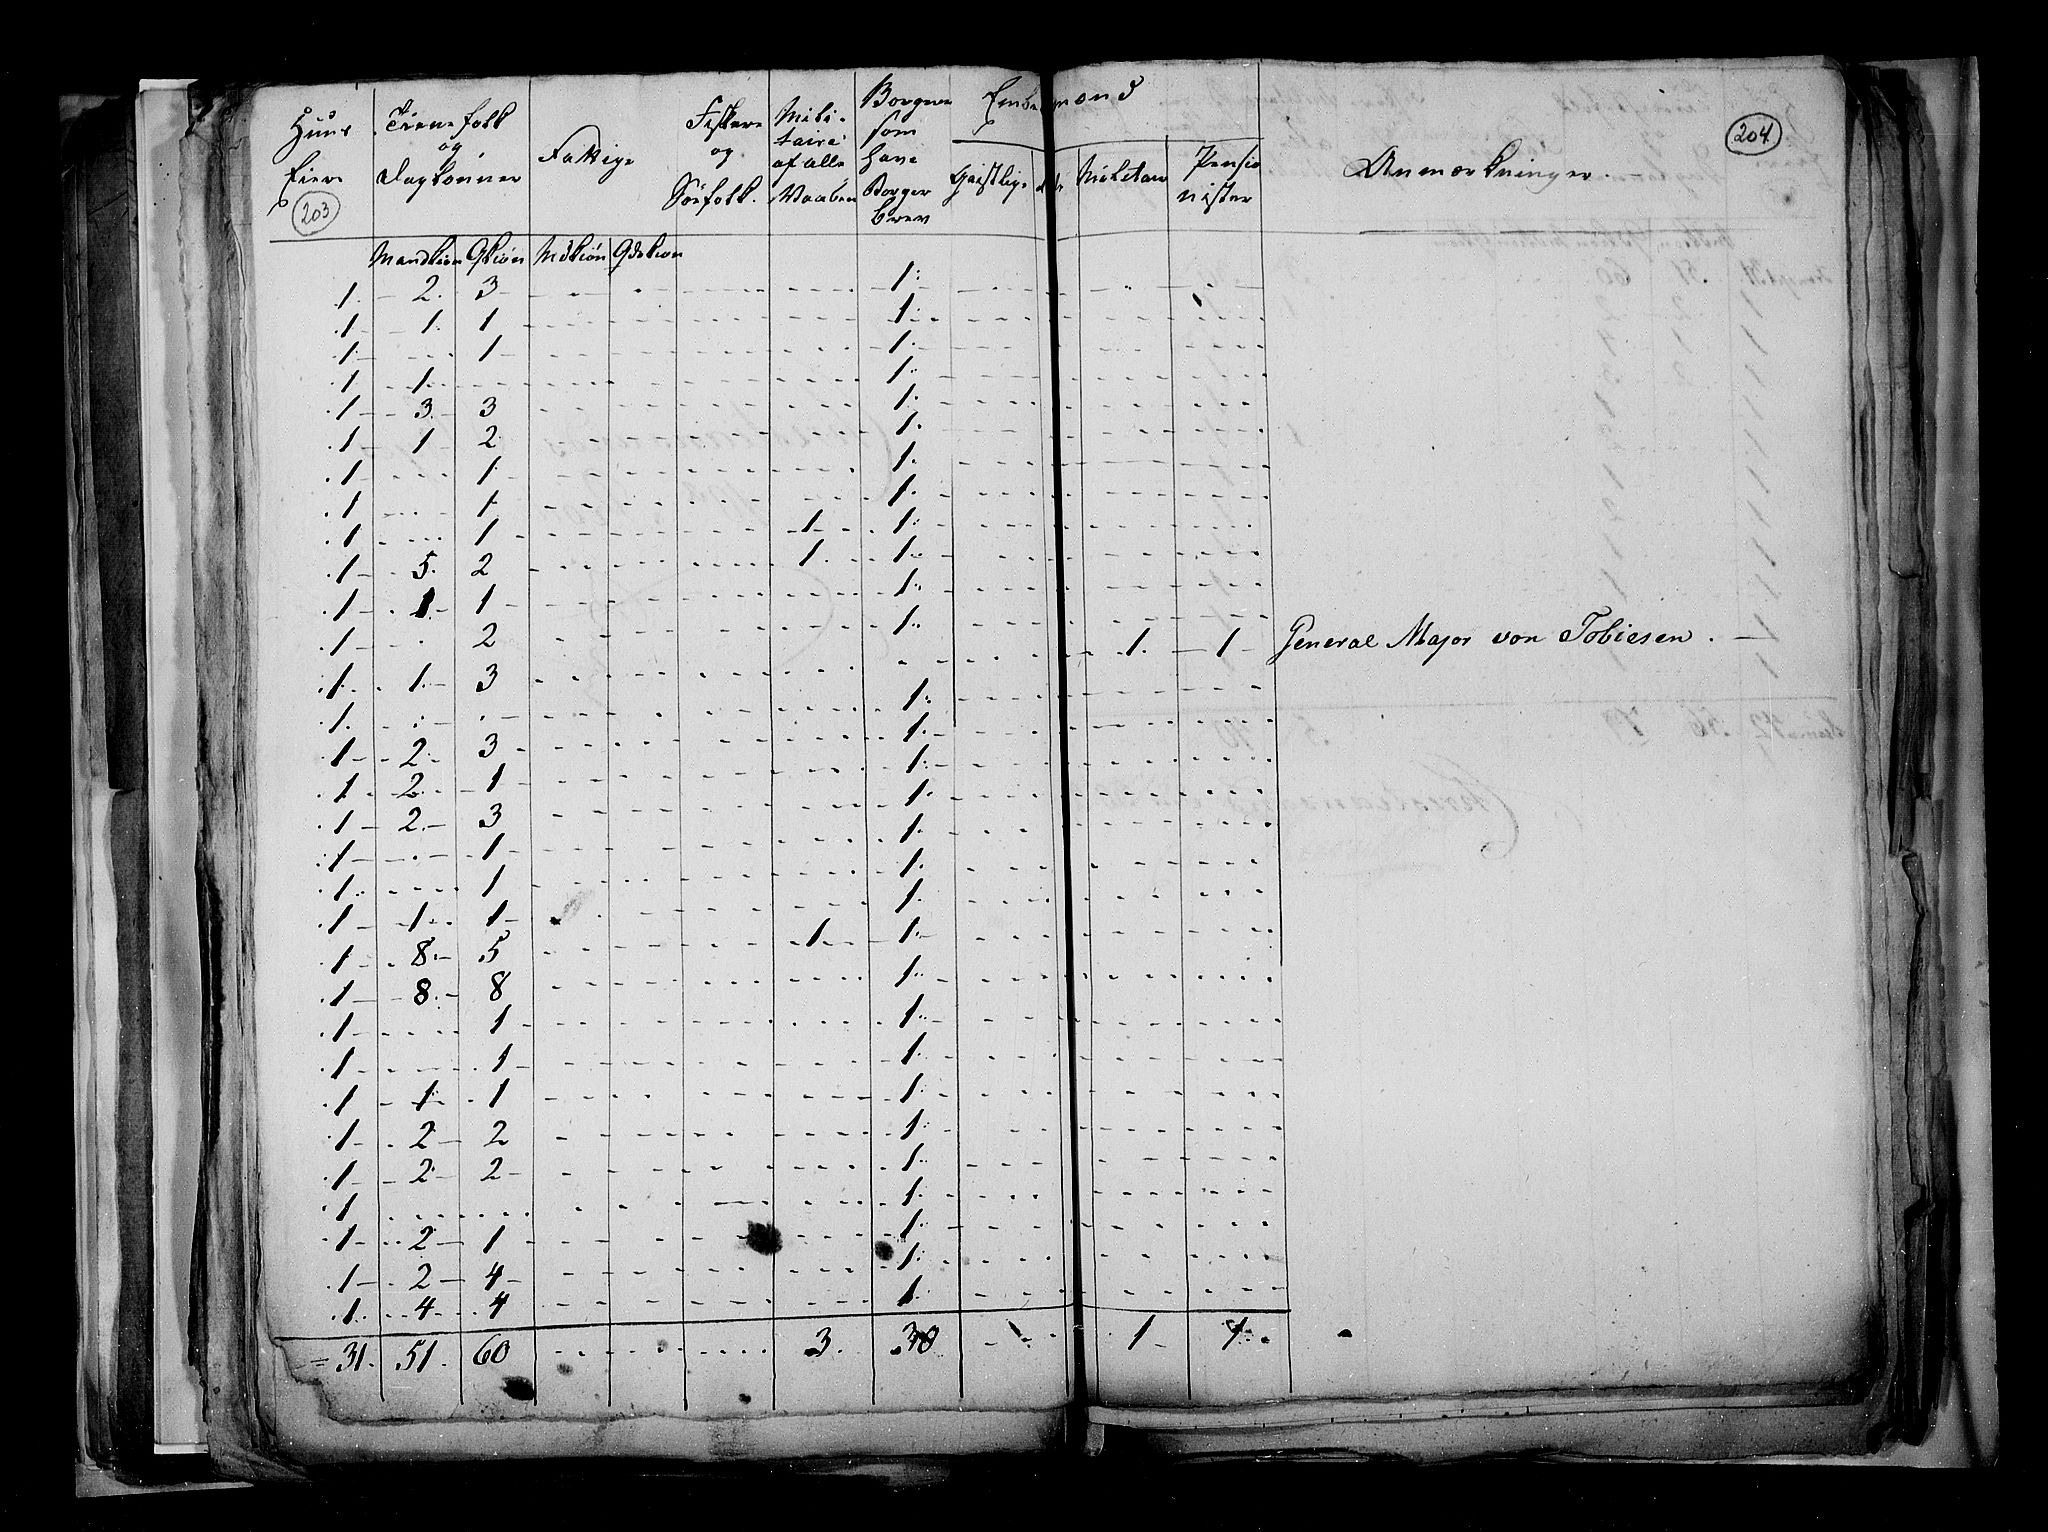 203
204
Huus Eiere
Tienefolk og Daglønner
Fattige
Fiskere og Søefolk.
Militaire af alle Vaaben
Borgere som have Borger brev
Embedsmænd
Geistlige
Militair
Pensionister
Anmærkninger.
Mandkiøn Qkiøn Mdkiøn Qdekiøn
1. 2. 3 1
1 1 1 1
1 1 1
1 1 1
1 3 3 1
1 1 2 1
1 1 1
1 1 1
1 1 1 1
1 5. 2 1 1
1 1 1 1
1 2 1
1 1 3 1 1 General Major von Tobiesen.
1. 1
1 2 3 1
1 2 1 1
1 2 3 1
1 1 1
1 1 1
1 1 1 1
1 8 5 1 1
1 8 8 1
1 1 1
1 1 1
1 1 1 1
1 2 2 1
1 2 2 1
1 1
1 2 1 1
1 2 4 1
1 4 4 1
= 31. 51. 60 3. 30 1 1